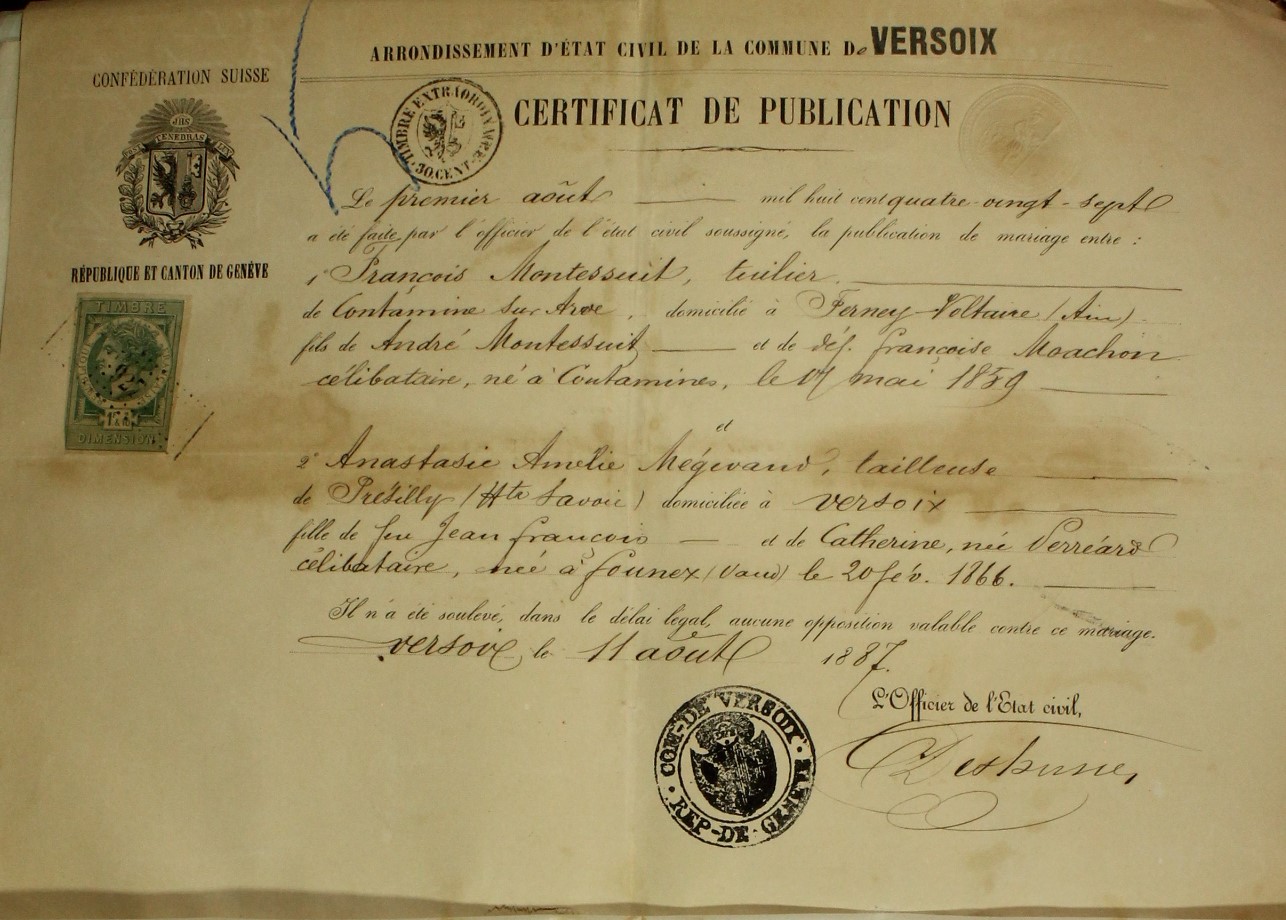 ARRONDISSEMENT D'ÉTAT CIVIL DE LA COMMUNE De VERSOIX
CONFÉDÉRATION SUISSE
JHS
POST TENEBRAS LUX
RÉPUBLIQUE ET CANTON DE GENÈVE
TIMBRE EXTRAORDINAIRE
30 CENT
CERTIFICAT DE PUBLICATION
Le premier août mil huit cent quatre-vingt-sept
a été faite par l'officier de l'état civil soussigné, la publication de mariage entre :
1° François Montessuit, tuilier
de Contamine sur Arve, domicilié à Ferney-Voltaire (Ain)
fils de André Montessuit et de déf. françoise Moachon
célibataire, né à Contamines, le mai 1859
et
2° Anastasie Amélie Mégevand, tailleuse
de Présilly (Hte Savoie) domiciliée à versoix
fille de feu Jean françois et de Catherine, née Perréard
célibataire, née à founex (Vaud) le 20 fév. 1866.
Il n'a été soulevé, dans le délai légal, aucune opposition valable contre ce mariage.
versoix, le 11 août 1887.
L'Officier de l'Etat civil,
TIMBRE
DIMENSION
COM-DE VERSOIX
REP-DE GENEVE